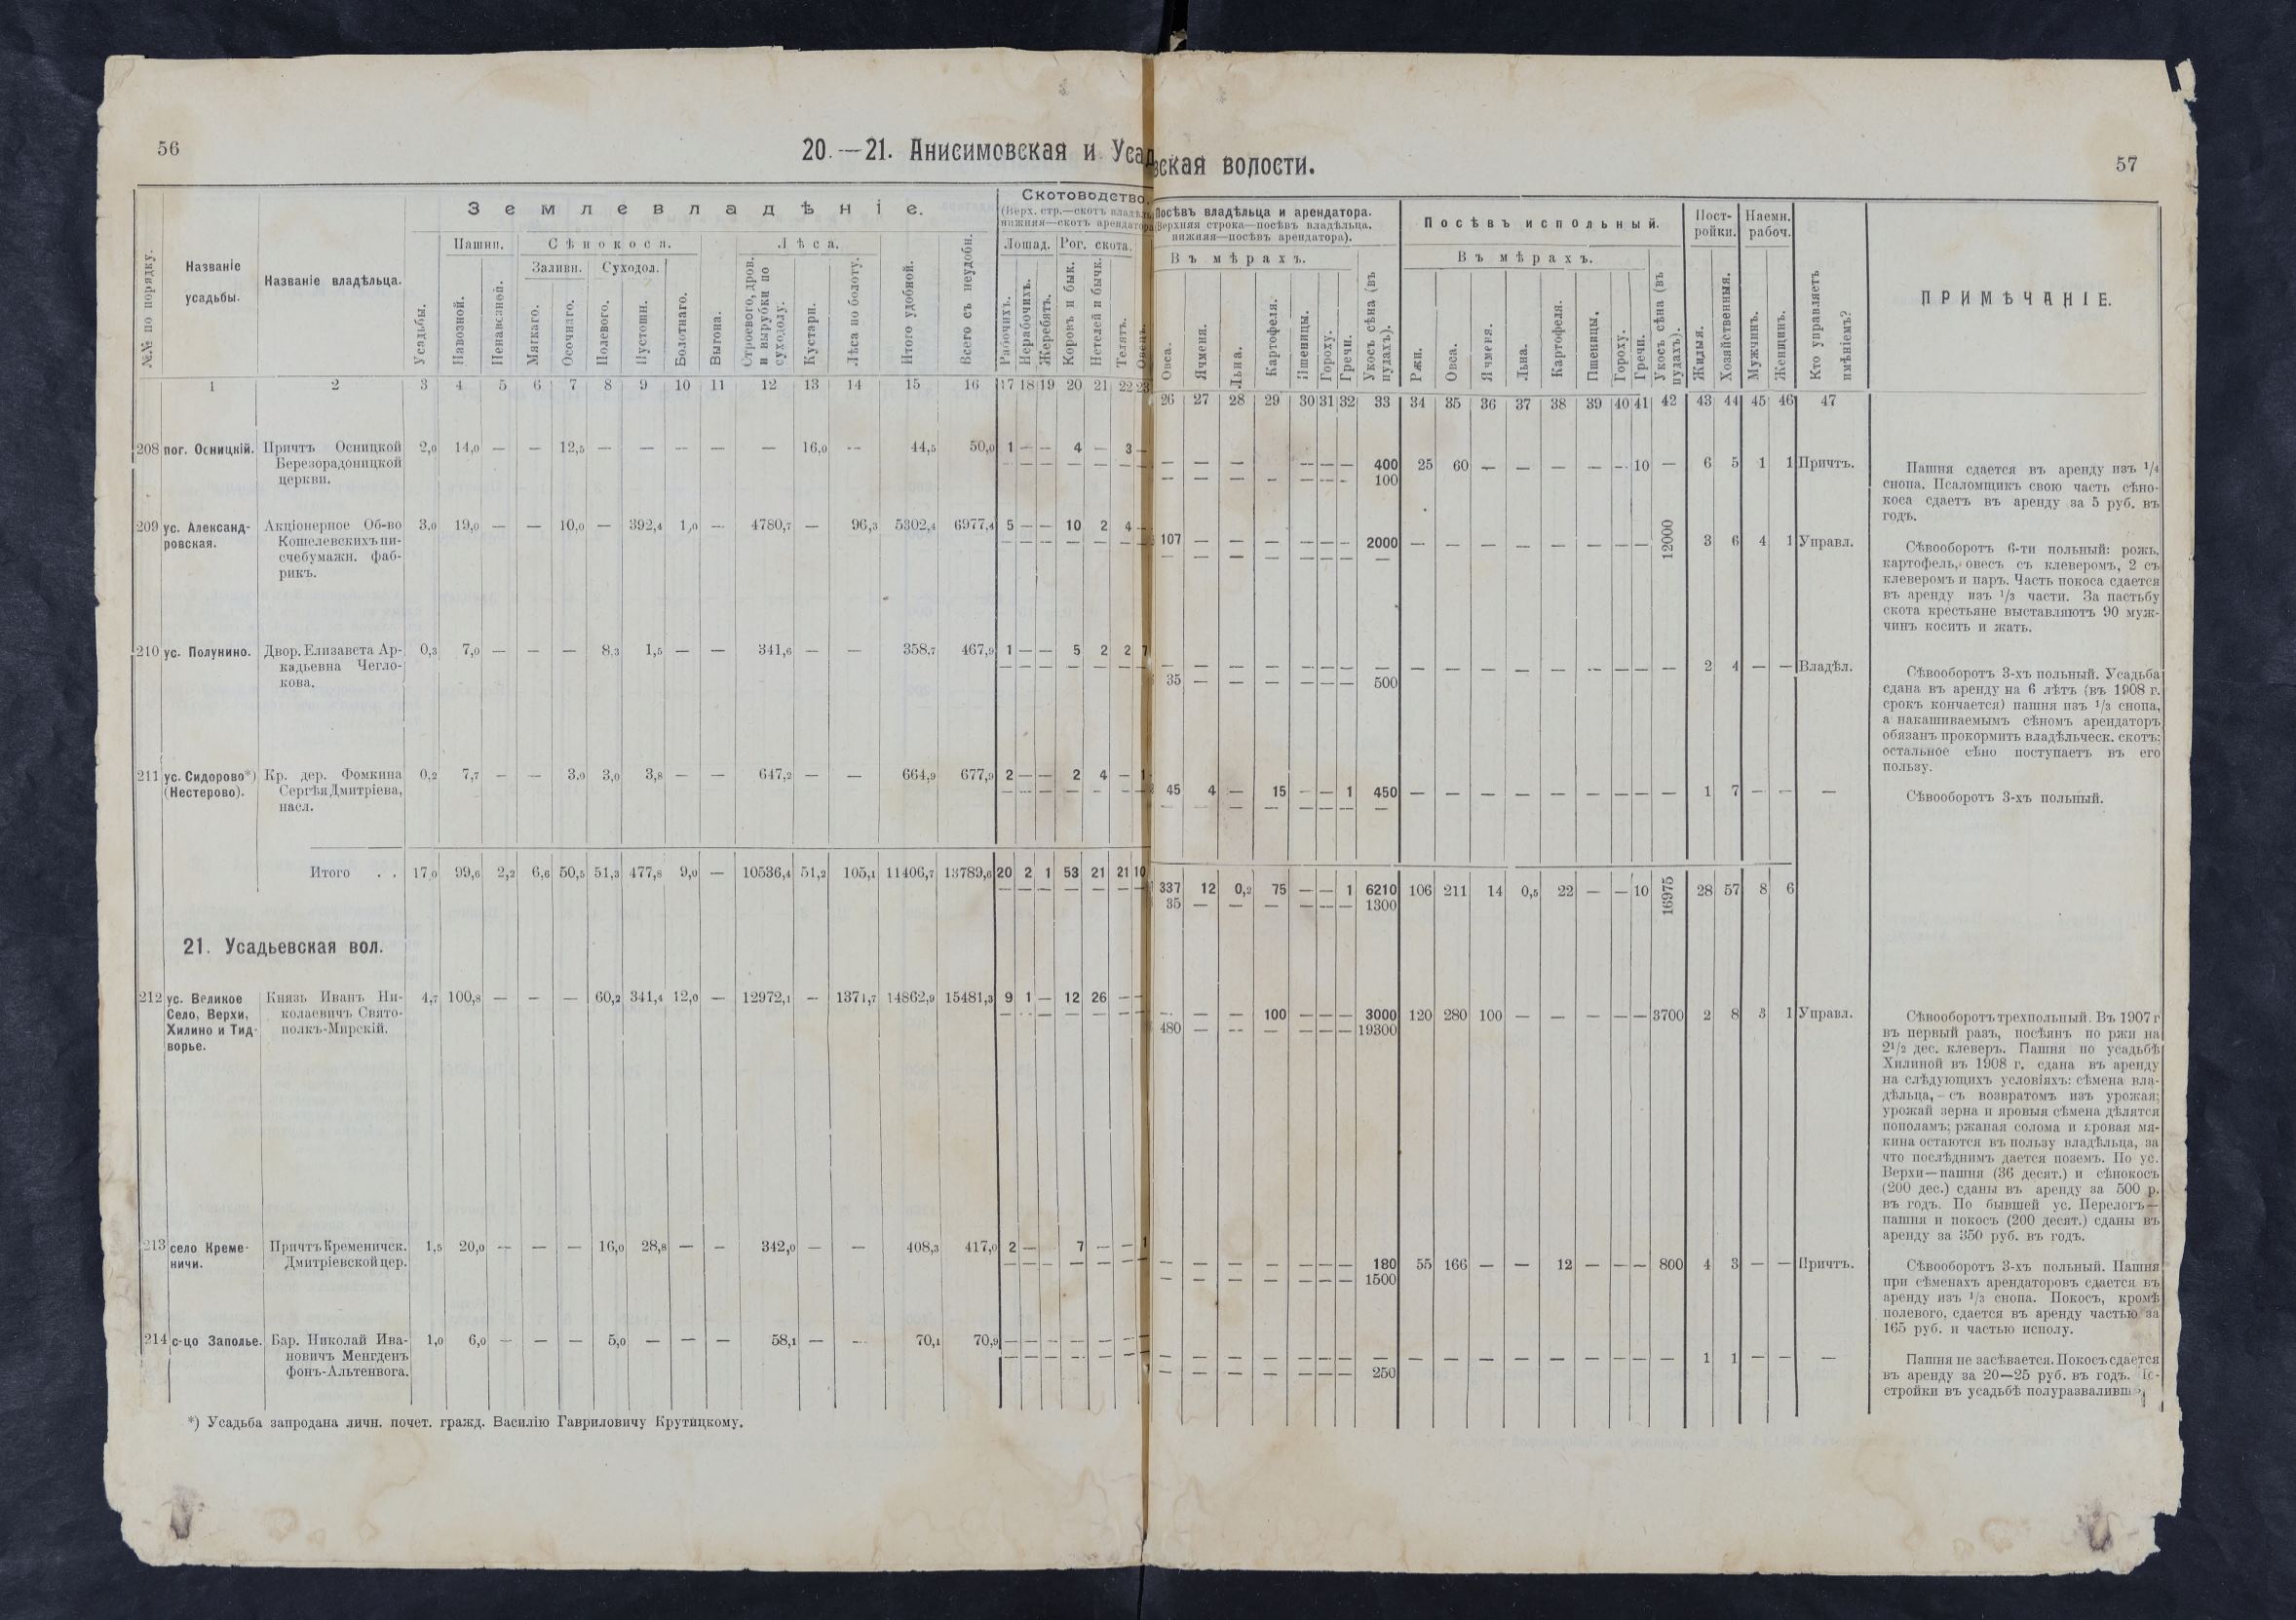 56
20.—21. Анисимовская и Усад
вская волости.
57
№№ по порядку.
Названіе
усадьбы.
Названіе владѣльца.
Землевладѣніе.
Усадьбы.
Пашни.
Навозной.
Ненавозной.
Сѣнокоса.
Заливн.
Суходол.
Мягкаго.
Осочнаго.
Полевого.
Пустошн.
Болотнаго.
Выгона.
Лѣса.
Строевого, дров.
и вырубки по
суходолу.
Кустарн.
Лѣса по болоту.
Итого удобной.
Всего съ неудобн.
Скотоводство.
(Верх. стр.—скотъ владѣл
нижняя—скотъ арендатора
Лошад.
Рог. скота.
Рабочихъ.
Нерабочихъ.
Жеребятъ.
Коровъ и бык.
Нетелей и бычк.
Телятъ.
Овецъ.
Посѣвъ владѣльца и арендатора.
(Верхняя строка—посѣвъ владѣльца,
нижняя—посѣвъ арендатора).
Въ мѣрахъ.
Овса.
Ячменя.
Льна.
Картофеля.
Пшеницы.
Гороху.
Гречи.
Укосъ сѣна (въ
пудахъ).
Посѣвъ испольный.
Въ мѣрахъ.
Ржи.
Овса.
Ячменя.
Льна.
Картофеля.
Пшеницы.
Гороху.
Гречи.
Укосъ сѣна (въ
пудахъ).
Пост-
ройки.
Жилыя.
Хозяйственныя.
Наемн.
рабоч.
Мужчинъ.
Женщинъ.
Кто управляетъ
имѣніемъ?
ПРИМѢЧАНІЕ.
1 2 3 4 5 6 7 8 9 10 11 12 13 14 15 16 17 18 19 20 21 22 23
26 27 28 29 30 31 32 33 34 35 36 37 38 39 40 41 42 43 44 45 46 47
208 пог. Осницкій. Причтъ Осницкой 2,0 14,0 — — 12,5 — — — — — 16,0 — 44,5 50,0 1 — — 4 — 3 —
Березорадоницкой — — — — — —
церкви.
— — — — — — 400 25 60 — — — — — 10 — 6 5 1 1 Причтъ.
— — — - — — - 100
Пашня сдается въ аренду изъ 1/4
снопа. Псаломщикъ свою часть сѣно-
коса сдаетъ въ аренду за 5 руб. въ
годъ.
209 ус. Александ- Акціонерное Об-во 3,0 19,0 — — 10,0 — 392,4 1,0 — 4780,7 — 96,3 5302,4 6977,4 5 — — 10 2 4 —
ровская. Кошелевскихъ пи- — — — — — —
счебумажн. фаб-
рикъ.
107 — — — — — — 2000 — — — — — — — — 12000 3 6 4 1 Управл.
— — — — — — — —
Сѣвооборотъ 6-ти польный: рожь,
картофель, овесъ съ клеверомъ, 2 съ
клеверомъ и паръ. Часть покоса сдается
въ аренду изъ 1/3 части. За пастьбу
скота крестьяне выставляютъ 90 муж-
чинъ косить и жать.
210 ус. Полунино. Двор. Елизавета Ар- 0,3 7,0 — — — 8,3 1,5 — — 341,6 — — 358,7 467,9 1 — — 5 2 2 7
кадьевна Чегло- — — — — — —
кова.
— — — — — — — — — — — — — — — — — 2 4 — — Владѣл.
35 — — — — — — 500
Сѣвооборотъ 3-хъ польный. Усадьба
сдана въ аренду на 6 лѣтъ (въ 1908 г.
срокъ кончается) пашня изъ 1/3 снопа,
а накашиваемымъ сѣномъ арендаторъ
обязанъ прокормить владѣльческ. скотъ;
остальное сѣно поступаетъ въ его
пользу.
211 ус. Сидорово*) Кр. дер. Фомкина 0,2 7,7 — — 3,0 3,0 3,8 — — 647,2 — — 664,9 677,9 2 — — 2 4 — 1
(Нестерово). Сергѣя Дмитріева, — — — — - —
насл.
45 4 — 15 — — 1 450 — — — — — — — — — 1 7 — — —
— — — — — — — —
Сѣвооборотъ 3-хъ польный.
Итого . . 17,0 99,6 2,2 6,6 50,5 51,3 477,8 9,0 — 10536,4 51,2 105,1 11406,7 13789,6 20 2 1 53 21 21 10
— — — — — — —
337 12 0,2 75 — — 1 6210 106 211 14 0,5 22 — — 10 16975 28 57 8 6
35 — — — — — — 1300
21. Усадьевская вол.
212 ус. Великое Князь Иванъ Ни- 4,7 100,8 — — — 60,2 341,4 12,0 — 12972,1 — 1371,7 14862,9 15481,3 9 1 — 12 26 — —
Село, Верхи, колаевичъ Свято- — — — — — — —
Хилино и Тид- полкъ-Мирскій.
ворье.
— — — 100 — — — 3000 120 280 100 — — — — — 3700 2 8 3 1 Управл.
480 — — — — — — 19300
Сѣвооборотъ трехпольный. Въ 1907 г
въ первый разъ, посѣянъ по ржи на
2 1/2 дес. клеверъ. Пашня по усадьбѣ
Хилиной въ 1908 г. сдана въ аренду
на слѣдующихъ условіяхъ: сѣмена вла-
дѣльца,—съ возвратомъ изъ урожая;
урожай зерна и яровыя сѣмена дѣлятся
пополамъ; ржаная солома и яровая мя-
кина остаются въ пользу владѣльца, за
что послѣднимъ дается поземъ. По ус.
Верхи—пашня (36 десят.) и сѣнокосъ
(200 дес.) сданы въ аренду за 500 р.
въ годъ. По бывшей ус. Перелогъ—
пашня и покосъ (200 десят.) сданы въ
аренду за 350 руб. въ годъ.
213 село Креме- Причтъ Кременичск. 1,5 20,0 — — — 16,0 28,8 — — 342,0 — — 408,3 417,0 2 — 7 — — 1
ничи. Дмитріевской цер. — — — — — —
— — — — — — — 180 55 166 — — 12 — — — 800 4 3 — — Причтъ.
— — — — — — — 1500
Сѣвооборотъ 3-хъ польный. Пашня
при сѣменахъ арендаторовъ сдается въ
аренду изъ 1/3 снопа. Покосъ, кромѣ
полевого, сдается въ аренду частью за
165 руб. и частью исполу.
214 с-цо Заполье. Бар. Николай Ива- 1,0 6,0 — — — 5,0 — — — 58,1 — — 70,1 70,9 — — — — — — —
новичъ Менгденъ — — — — — — —
фонъ-Альтенвога.
— — — — — — — — — — — — — — — — — 1 1 — — —
— — — — — — — 250
Пашня не засѣвается. Покосъ сдается
въ аренду за 20—25 руб. въ годъ.
стройки въ усадьбѣ
*) Усадьба запродана личн. почет. гражд. Василію Гавриловичу Крутицкому.